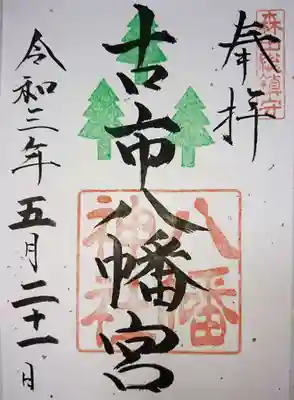 奉拝
森田総鎮守
古市八幡宮
八幡
神社
令和三年五月二十一日